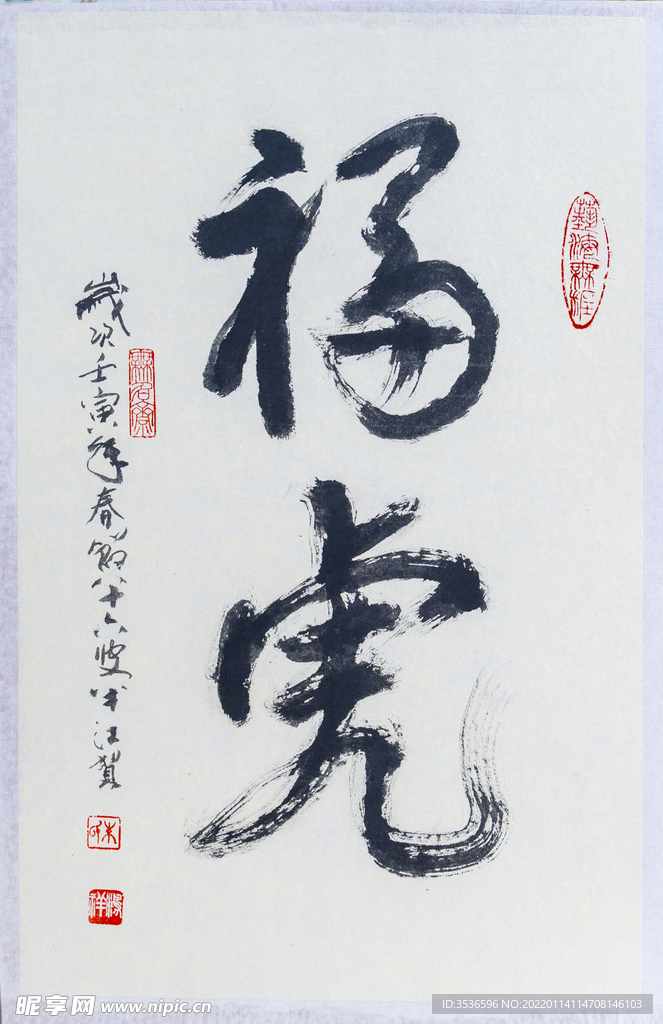 福
虎
藝海無涯
歲次壬寅年春
八十六叟
江賀
祥鴻
昵享网 www.nipic.cn
ID:3536596 NO:20220114114708146103